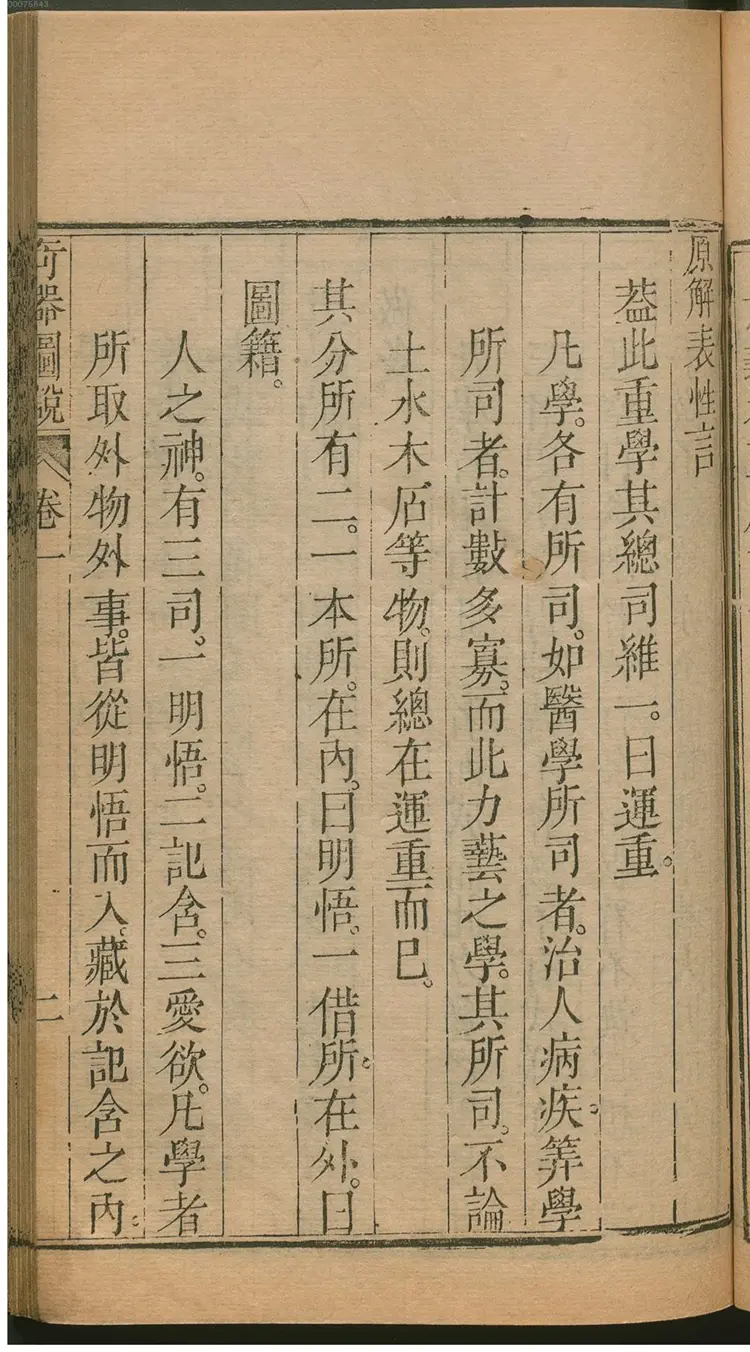 原解表性言
葢此重學其總司維一。曰運重。
凡學。各有所司。如醫學所司者。治人病疾。筭學
所司者。計數多寡。而此力藝之學。其所司。不論
土水木石等物。則總在運重而已。
其分所有二。一本所。在內。曰明悟。一借所。在外。曰
圖籍。
人之神。有三司。一明悟。二記含。三愛欲。凡學者
所取外物外事。皆從明悟而入。藏於記含之內。
奇器圖說 卷一 二
00076843